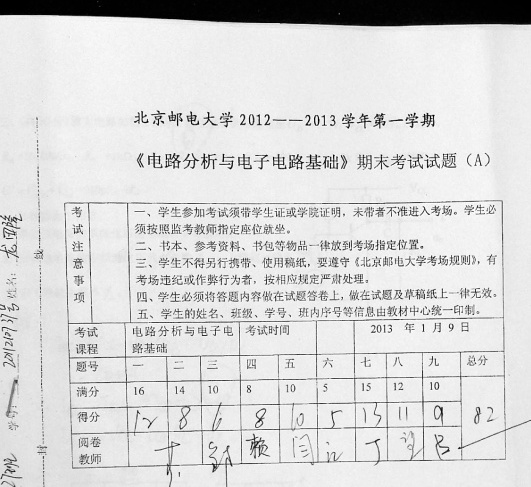 北京邮电大学 2012——2013 学年第一学期
《电路分析与电子电路基础》期末考试试题（A）
考试注意事项
一、学生参加考试须带学生证或学院证明，未带者不准进入考场。学生必
须按照监考教师指定座位就坐。
二、书本、参考资料、书包等物品一律放到考场指定位置。
三、学生不得另行携带、使用稿纸，要遵守《北京邮电大学考场规则》，有
考场违纪或作弊行为者，按相应规定严肃处理。
四、学生必须将答题内容做在试题答卷上，做在试题及草稿纸上一律无效。
五、学生的姓名、班级、学号、班内序号等信息由教材中心统一印制。
考试课程 电路分析与电子电路基础 考试时间 2013 年 1 月 9 日
题号 一 二 三 四 五 六 七 八 九 总分
满分 16 14 10 8 10 5 15 12 10
得分 12 8 6 8 10 5 13 11 9 82
阅卷教师 赖 闫 丁 吕
姓名：